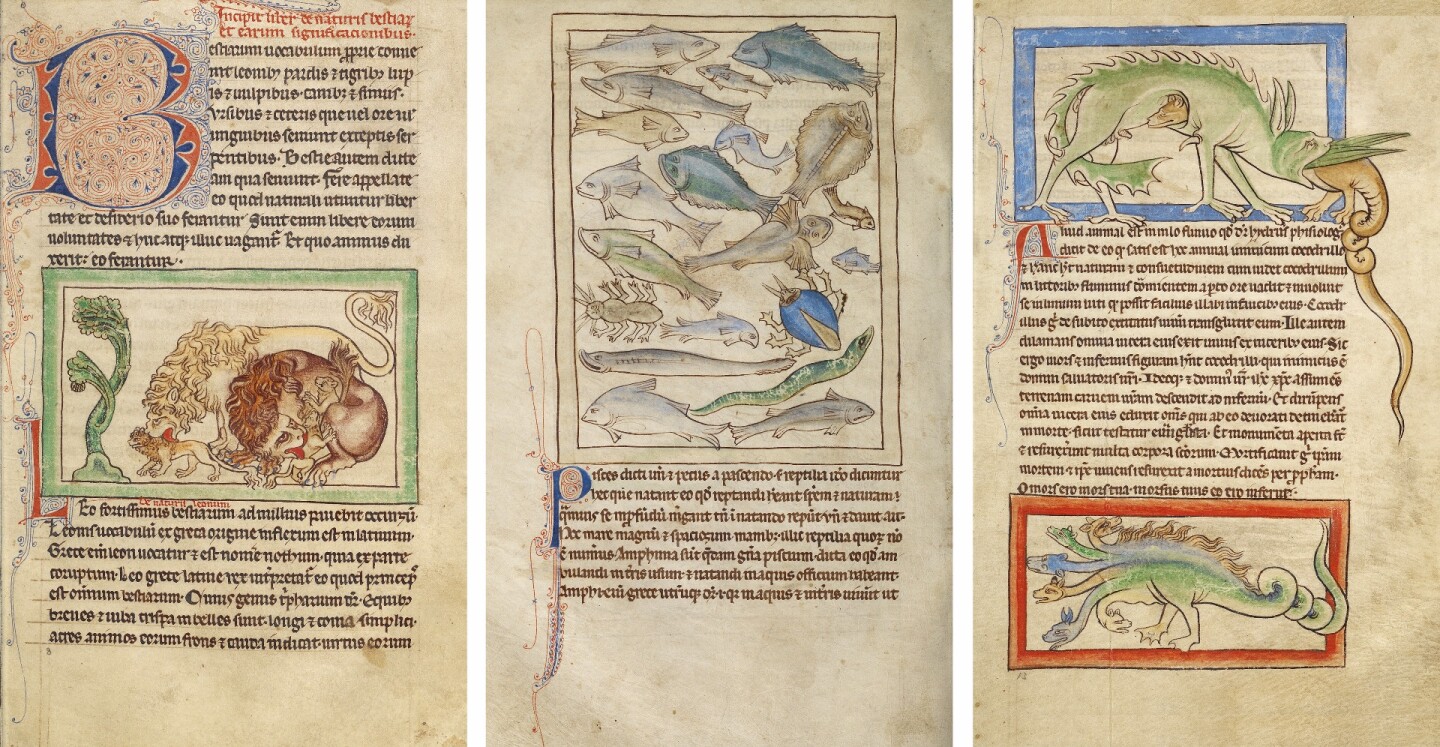 Incipit liber de naturis bestiaꝝ
et earum significacionibus.
Bestiarum uocabulum ꝓprie conue
nit leonibꝫ pardis ⁊ tigribꝫ lup
is ⁊ uulpibus canibꝫ ⁊ simiis.
Vrsibus ⁊ ceteris que uel ore uel
unguibus seuiunt exceptis ser
pentibus. Bestie autem dicte
am qua seuiunt. Fere appellate
eo quod naturali utuntur liber
tate et desiderio suo ferantur Sunt enim libere eorum
uoluntates ⁊ huc atqꝫ illuc uagant̃. Et quo animus du
xerit: eo feruntur.
De naturis leonum
Leo fortissimus bestiarum ad nullius pauebit occursũ.
Leonis uocabulũ ex greca origine inflexum est in latinum.
Grece eni͂ leon uocatur ⁊ est nom̃e nothum. quia ex parte
corruptum. Leo grete latine rex int̃pretat̃ eo quod princeps
est omium bestiarum. Cuius genus tⁱpharium dr̃. E quibꝫ
breues ⁊ iuba crispa inbelles sunt. longi ⁊ coma simplici
acres animos eorum frons ⁊ cauda indicat. uirtus eorum
8
Pisces dicti un̄ ⁊ pecus a pascendo. ⁊ reptilia iõo dicuntur
hec que natant eo qd̃ reptandi heant spem ⁊ naturam ⁊
qm̃uis se in ꝓfũdũ mergant tñ i natando repũt. vñ ⁊ dauit ait.
Hec mare magnũ ⁊ spaciosum manibꝫ. illic reptilia quoꝝ nõ
ẽ num̃us. Amphima sũt q̃dam gñra piscium. dicta eo qd̃ am
bulandi in tr̃is usum. ⁊ natandi in aquis officium habeant.
Amphi em̃ grece utrũqꝫ dr. i. qꝛ in aquis ⁊ in tr̃is uiuũt ut
Aliud animal est in nilo fluuio qd̃ dr̃ hydrus physiolog
dicit de eo qꝫ satis est hec animal inimicum cocodrillo
⁊ hanc ht̃ naturam ⁊ consuetudinem cum uidet cocodrillum
in littoribꝫ fluminis dormientem apto ore uadit ⁊ inuoluit
se in limum luti qꝫ possit facilius illabi in faucibꝫ eius. Cocodr
illus g̊ de subito excitatus uiuũ transglutit eum. Ille autem
dilanians omnia uiscera eius exit uiuus ex uiscerib; eius. Sic
ergo mors ⁊ infernus figuram hñt cocodrilli. qui inimicus ẽ
domini saluatoris nr̃i. Ideoqꝫ ⁊ dominus nr̃ ihc xp̃c assumẽs
terrenam carnem nr̃am descendit ad infernũ. Et dirũpens
omnia uiscera eius eduxit om̃s qui ab eo deuorati detinebãt̃
in morte. sicut testatur eũu̇gl̃ista. Et monumẽta aperta st̃
⁊ resurrexerunt multa corpora sc̃orum. Mortificauit g̊ ipsam
mortem ⁊ ip̃e uiuens resurrexit a mortuis dicẽs per ꝓpham.
O mors ero mors tua. morsus tuus ero inferne.
12